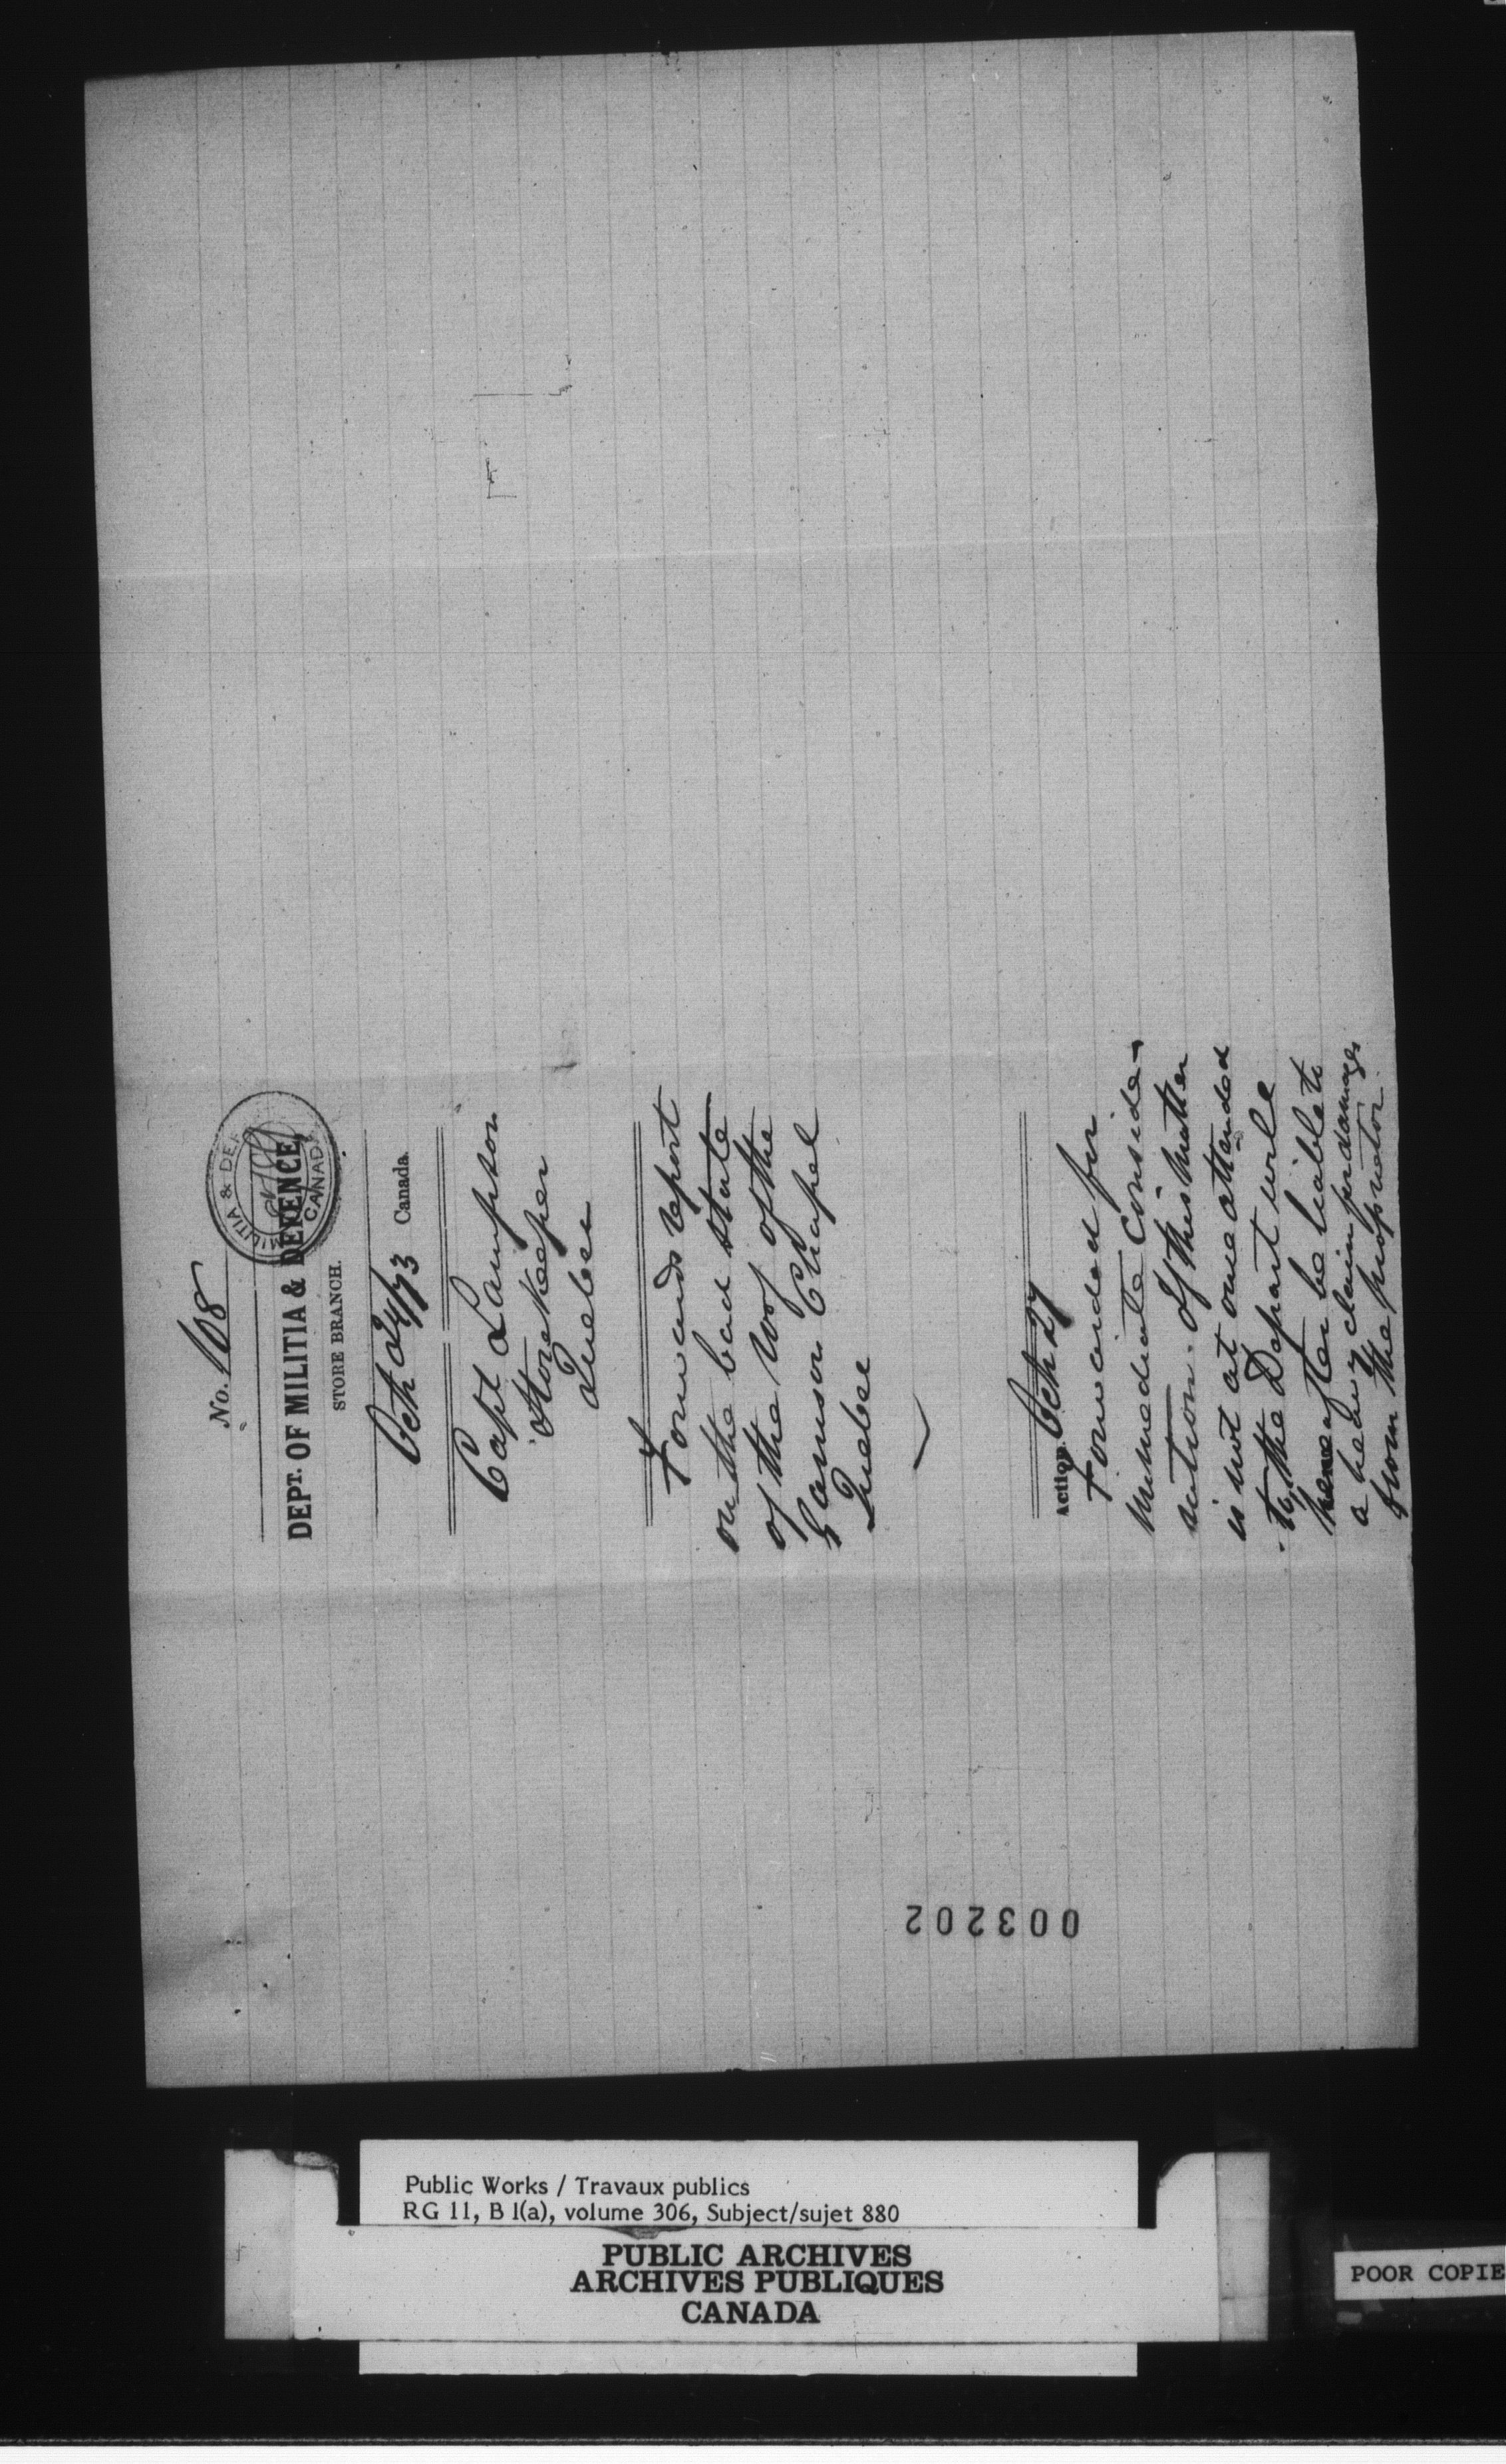 No. 108
MILITIA & DEF
CANADA
DEPT. OF MILITIA & DEFENCE,
STORE BRANCH.
Octr 24/73 Canada.
Capt Lampson
Storekeeper
Quebec
Forwards report
on the bad state
of the roof of the
Garrison Chapel
Quebec
Action. Octr 27
Forwarded for
immediate conside-
ration. If this matter
is not at once attended
to, the Depart will
hereafter be liable to
a heavy claim for damages
from the proprietor.
003202
Public Works / Travaux publics
RG 11, B 1(a), volume 306, Subject/sujet 880
PUBLIC ARCHIVES
ARCHIVES PUBLIQUES
CANADA
POOR COPIE